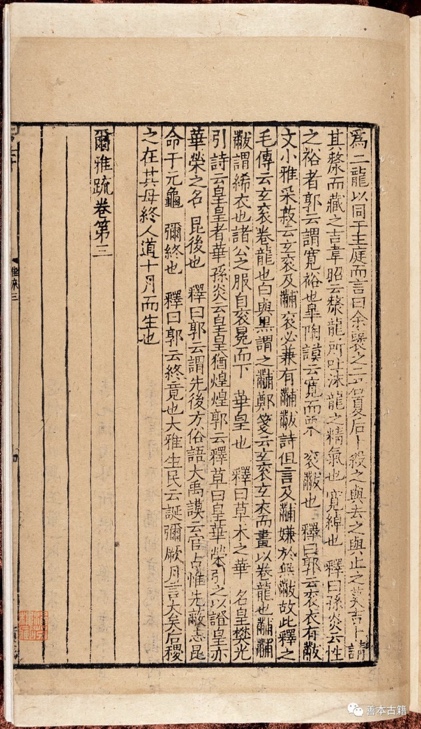 為二龍以同于王庭而言曰余襃之二君夏后卜殺之與去之與止之莫吉卜請
其漦而藏之吉韋昭云漦龍所吐沫龍之精氣也 寬綽也 釋曰孫炎云性
之裕者郭云謂寬裕也皐陶謨云寬而栗 衮黻也 釋曰郭云衮衣有黻
文小雅采菽云玄衮及黼衮必兼有黼黻詩但言及黼嫌於無黻故此釋之
毛傳云玄衮卷龍也白與黑謂之黼鄭箋云玄衮玄衣而畫以卷龍也黼黼
黻謂絺衣也諸公之服自衮冕而下 華皇也 釋曰草木之華 名皇樊光
引詩云皇皇者華孫炎云皇皇猶煌煌郭云釋草曰皇華榮引之以證皇亦
華榮之名 昆後也 釋曰郭云謂先後方俗語大禹謨云官占惟先蔽志昆
命于元龜 彌終也 釋曰郭云終竟也大雅生民云誕彌厥月言大矣后稷
之在其母終人道十月而生也
爾雅疏卷第三
善本古籍